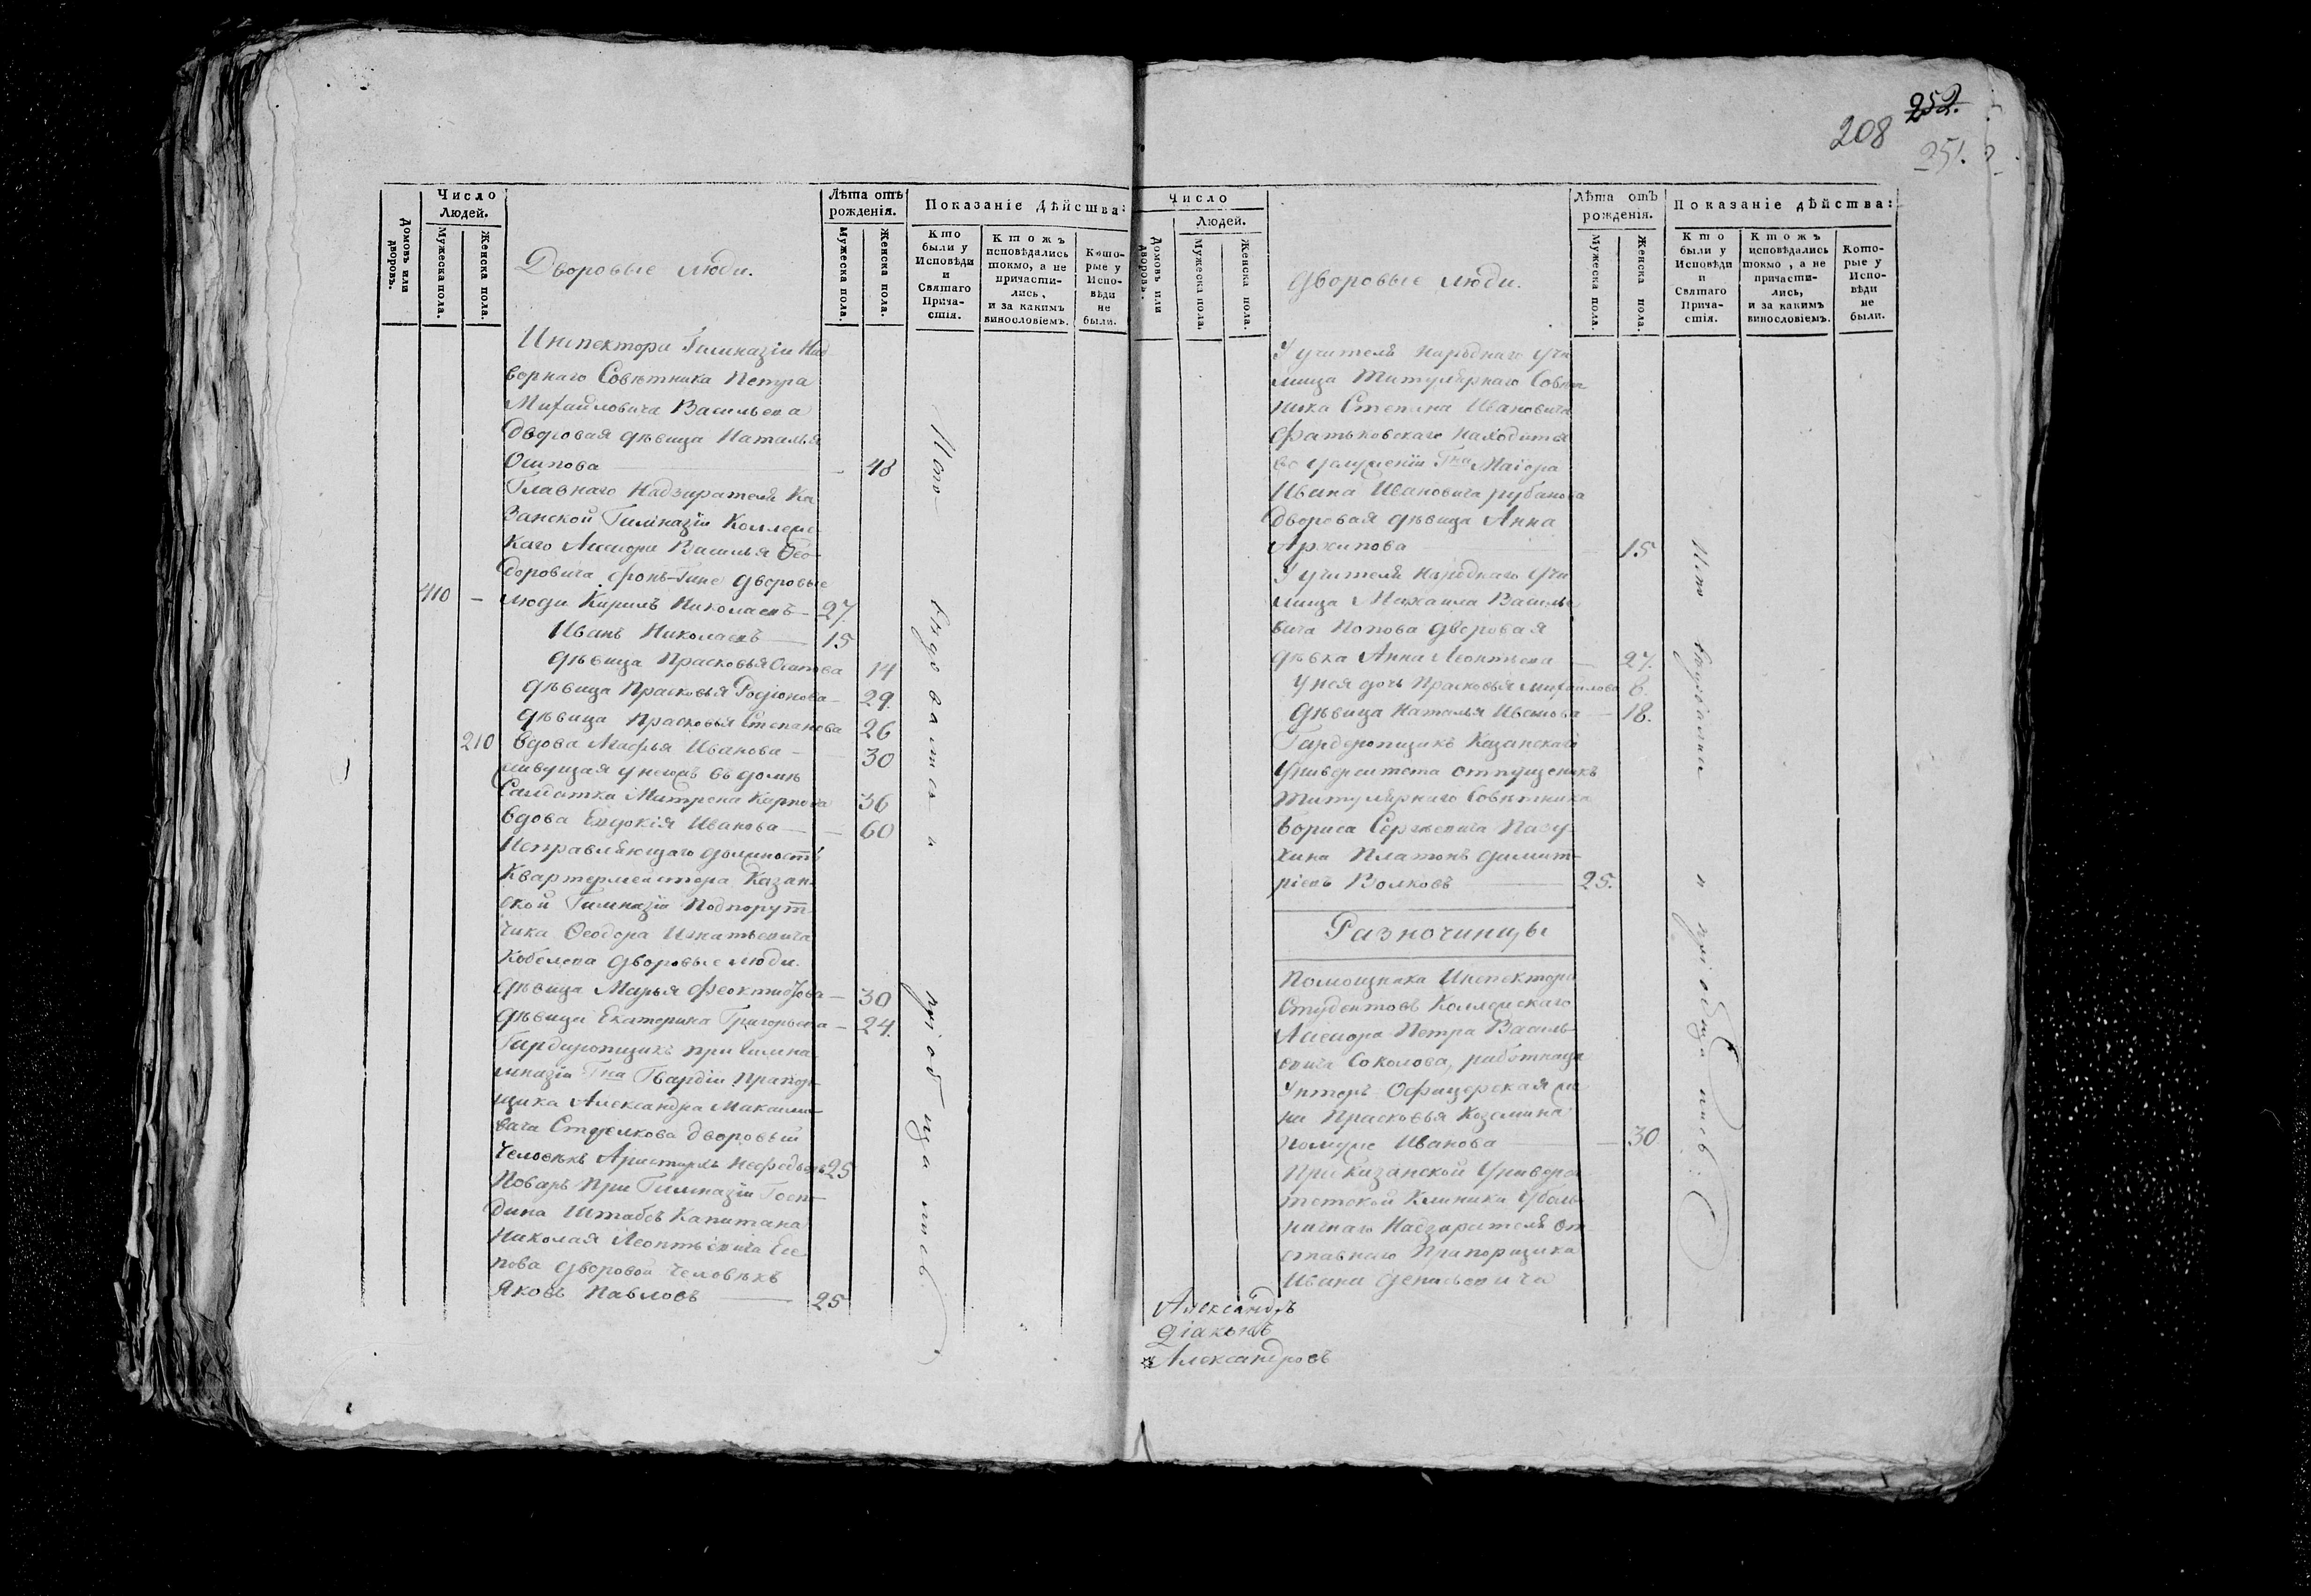 252.
208
251.
Домовъ или дворовъ.
Число
Людей.
Мужеска пола.
Женска пола.
Дворовые люди.
Лѣта отъ
рожденія.
Мужеска пола.
Женска пола.
Показаніе дѣйства:
Кто
были у
Исповѣди
и
Святаго
Прича-
стія.
Ктожъ
исповѣдались
токмо, а не
причасти-
лись,
и за какимъ
винословіемъ.
Кото-
рые у
Испо-
вѣди
не
были.
Инспектора Гимназіи Над
ворнаго Совѣтника Петра
Михайловича Васильева
дворовая дѣвица Наталья
Осипова — 48
Главнаго Надзирателя Ка
занской Гимназіи Коллежс
каго Ассесора Василья Ѳео
доровича фонъ-Гине дворовые
410 — люди Кирилъ Николаевъ — 27.
Иванъ Николаевъ — 15
дѣвица Прасковья Осипова 14
дѣвица Прасковья Родіонова — 29.
дѣвица Прасковья Степанова 26
210 вдова Агафья Иванова — 30
живущая у него въ домѣ
Салдатка Матрена Карпова 36
вдова Евдокія Иванова — 60
Исправляющаго должность
Квартермейстера Казан
ской Гимназіи Подпорут
чика Ѳеодора Игнатьевича
Кобелева дворовые люди.
дѣвица Марья Феоктистова — 30
дѣвица Екатерина Григорьева — 24.
Гардиропщикъ при Гимна
мназіи Гна Гвардіи Прапор
щика Александра Максимо
вича Стрелкова дворовый
человѣкъ Аристархъ Нефедьевъ 25
Поваръ при Гимназіи Госпо
дина Штабсъ Капитана
Николая Леонтьевича Есе
пова дворовой человѣкъ
Яковъ Павловъ — 25
Исповѣдвались и пріобщались
Домовъ или дворовъ.
Число
Людей.
Мужеска пола.
Женска пола.
Дворовые люди.
Лѣта отъ
рожденія.
Мужеска пола.
Женска пола.
Показаніе дѣйства:
Кто
были у
Исповѣди
и
Святаго
Прича-
стія.
Ктожъ
исповѣдались
токмо, а не
причасти-
лись,
и за какимъ
винословіемъ.
Кото-
рые у
Испо-
вѣди
не
были.
У учителя народнаго учи
лища Титулярнаго Совѣт
ника Степана Ивановича
Фатьковскаго находится
во услуженіи Гна Маіора
Ивана Ивановича рубанова
дворовая дѣвица Анна
Архипова — 15
У учителя народнаго учи
лища Михаила Василье
вича Попова дворовая
дѣвка Анна Леонтьева — 27.
у нея дочь Прасковья Михайлова 6.
дѣвица Наталья Иванова — 18.
Гардеропщикъ Казанскаго
Университета отпущеникъ
Титулярнаго Совѣтника
Бориса Сергѣевича Пазу
хина Платонъ Димит
ріевъ Волковъ — 25.
Разночинцы
Помощника Инспектора
Студентовъ Коллежскаго
Ассесора Петра Василь
евича Соколова, работница
Унтеръ Офицерская же
на Прасковья Козмина
по муже Иванова — 30
При Казанской Универси
тетской Клиники у боль
ничнаго Надзирателя от
ставнаго Прапорщика
Ивана Денисьевича
Исповѣдвались и пріобщались
Александръ
Діаконъ
Александровъ